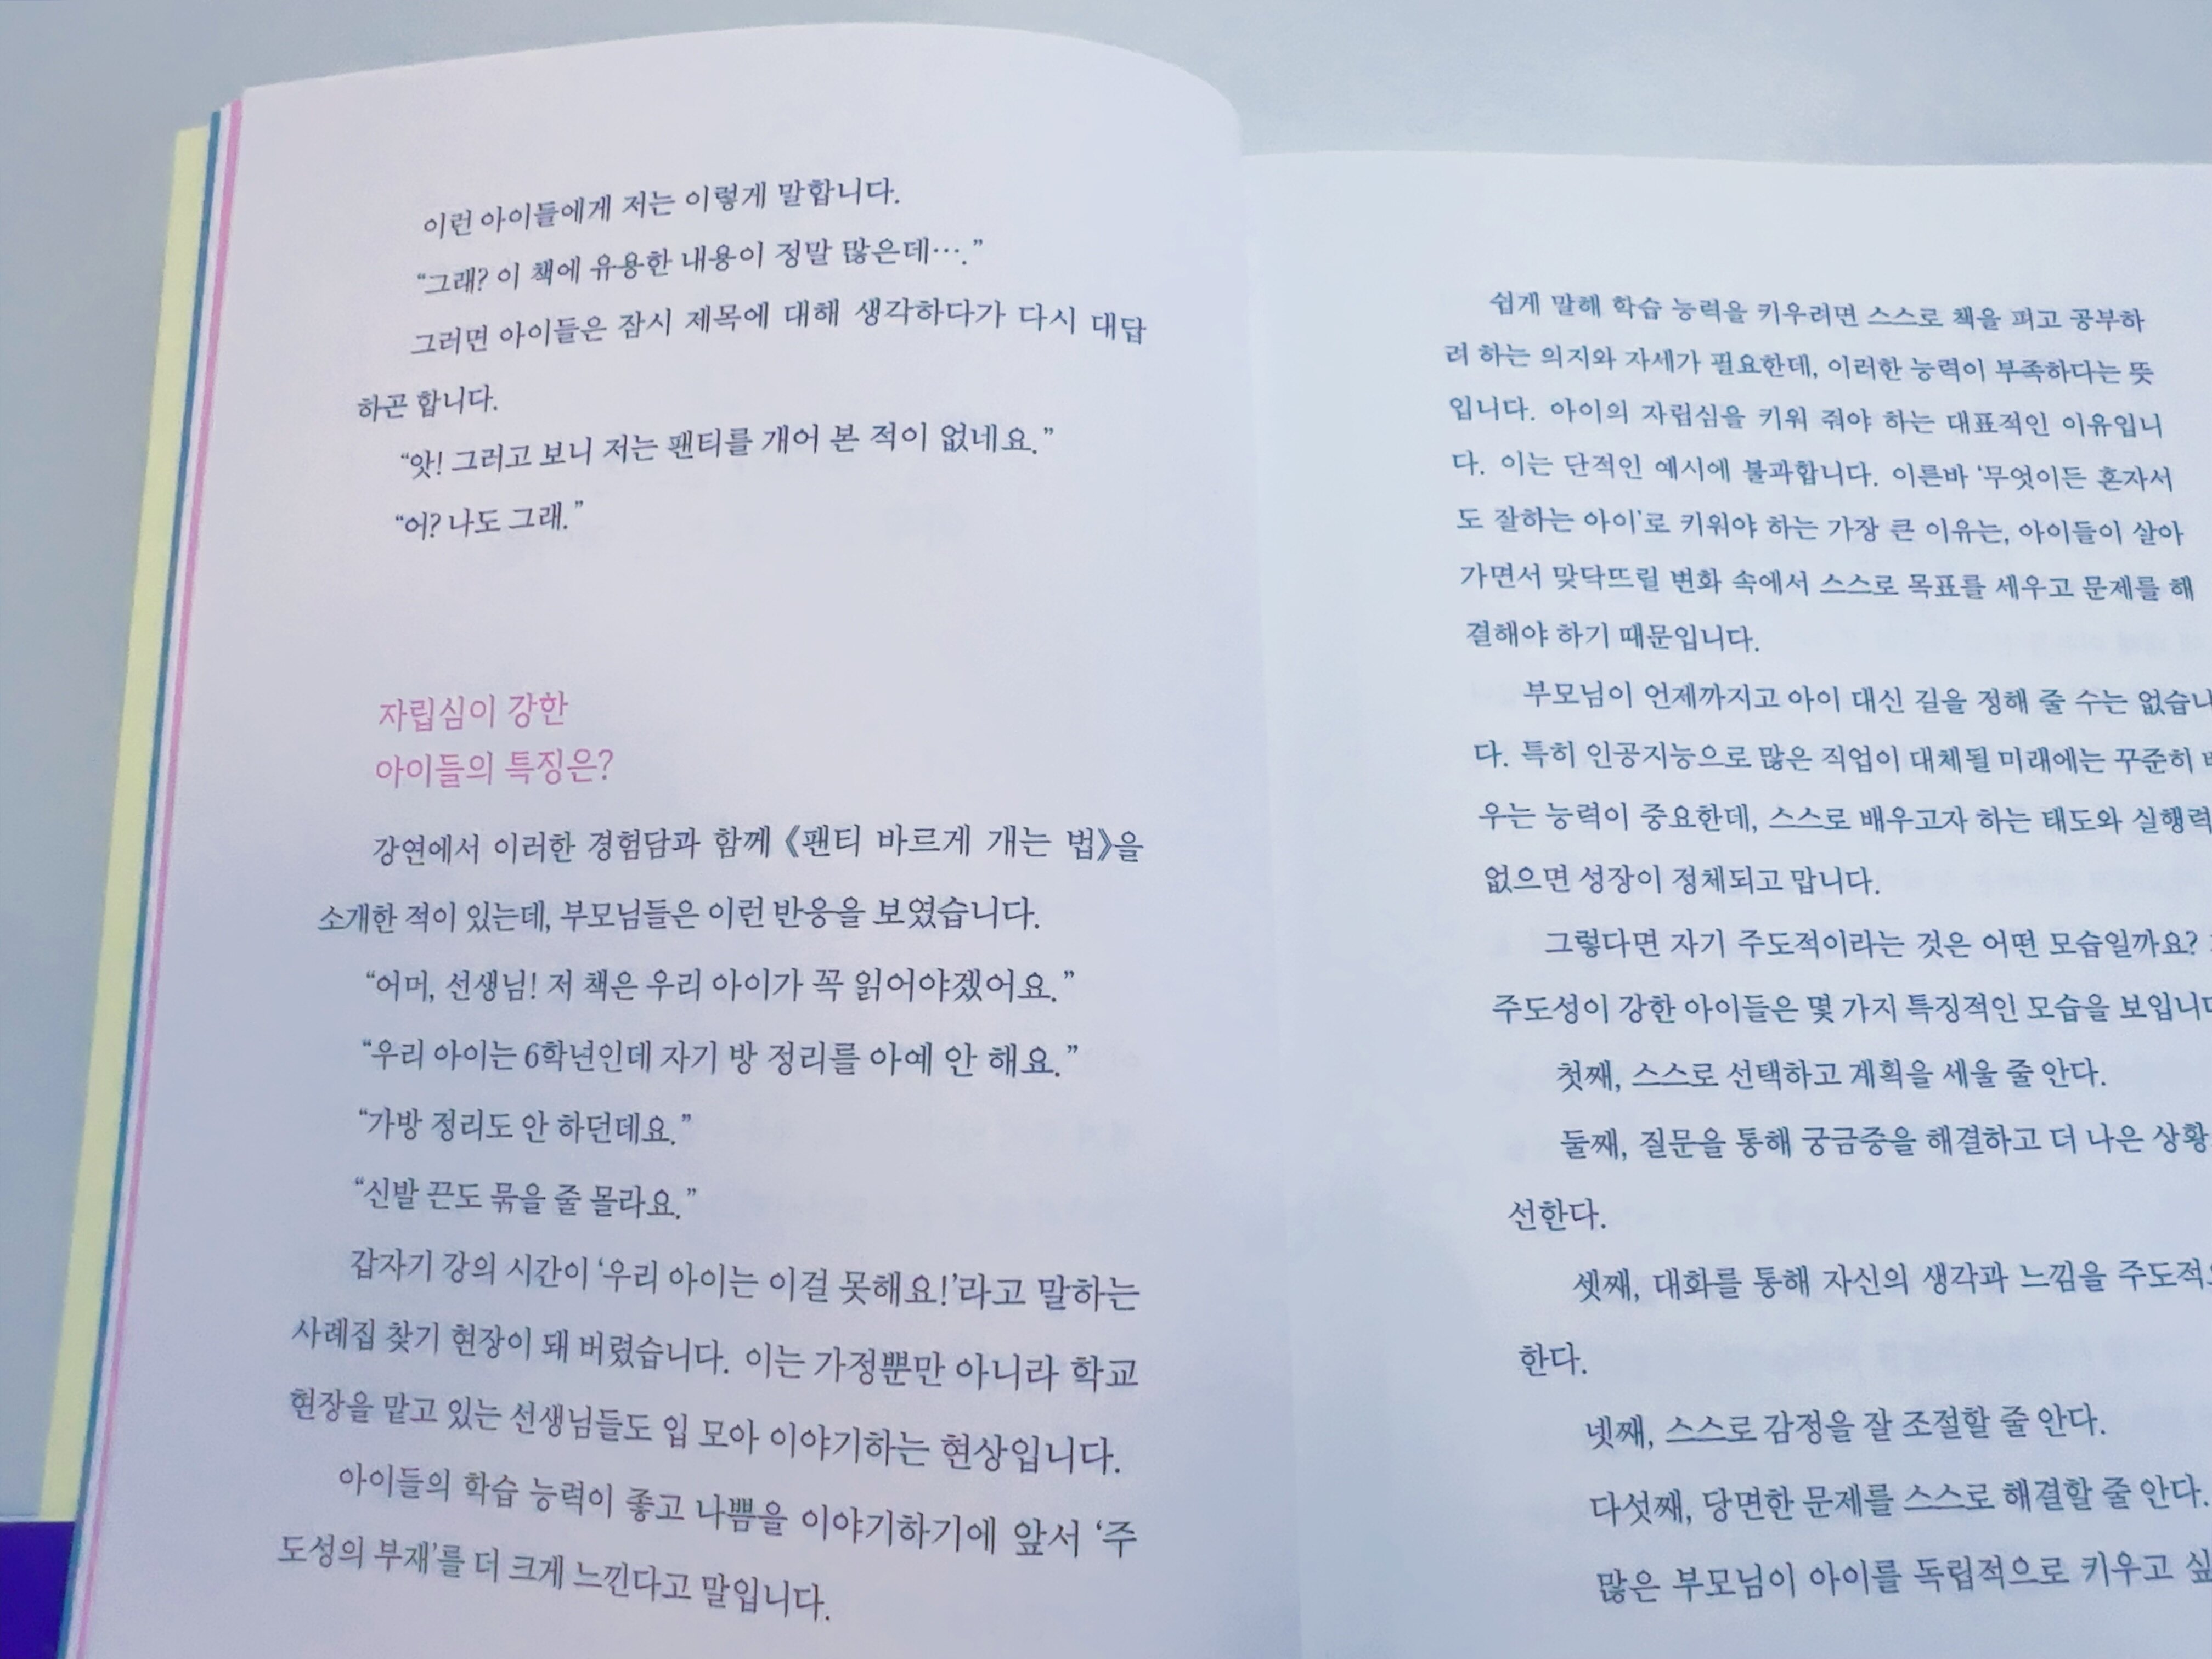 이런 아이들에게 저는 이렇게 말합니다.
“그래? 이 책에 유용한 내용이 정말 많은데….”
그러면 아이들은 잠시 제목에 대해 생각하다가 다시 대답
하곤 합니다.
“앗! 그러고 보니 저는 팬티를 개어 본 적이 없네요.”
“어? 나도 그래.”
자립심이 강한
아이들의 특징은?
강연에서 이러한 경험담과 함께 《팬티 바르게 개는 법》을
소개한 적이 있는데, 부모님들은 이런 반응을 보였습니다.
“어머, 선생님! 저 책은 우리 아이가 꼭 읽어야겠어요.”
“우리 아이는 6학년인데 자기 방 정리를 아예 안 해요.”
“가방 정리도 안 하던데요.”
“신발 끈도 묶을 줄 몰라요.”
갑자기 강의 시간이 ‘우리 아이는 이걸 못해요!’라고 말하는
사례집 찾기 현장이 돼 버렸습니다. 이는 가정뿐만 아니라 학교
현장을 맡고 있는 선생님들도 입 모아 이야기하는 현상입니다.
아이들의 학습 능력이 좋고 나쁨을 이야기하기에 앞서 ‘주
도성의 부재’를 더 크게 느낀다고 말입니다.
쉽게 말해 학습 능력을 키우려면 스스로 책을 펴고 공부하
려 하는 의지와 자세가 필요한데, 이러한 능력이 부족하다는 뜻
입니다. 아이의 자립심을 키워 줘야 하는 대표적인 이유입니
다. 이는 단적인 예시에 불과합니다. 이른바 ‘무엇이든 혼자서
도 잘하는 아이’로 키워야 하는 가장 큰 이유는, 아이들이 살아
가면서 맞닥뜨릴 변화 속에서 스스로 목표를 세우고 문제를 해
결해야 하기 때문입니다.
부모님이 언제까지고 아이 대신 길을 정해 줄 수는 없습니
다. 특히 인공지능으로 많은 직업이 대체될 미래에는 꾸준히
우는 능력이 중요한데, 스스로 배우고자 하는 태도와 실행력
없으면 성장이 정체되고 맙니다.
그렇다면 자기 주도적이라는 것은 어떤 모습일까요?
주도성이 강한 아이들은 몇 가지 특징적인 모습을 보입니다
첫째, 스스로 선택하고 계획을 세울 줄 안다.
둘째, 질문을 통해 궁금증을 해결하고 더 나은 상황
선한다.
셋째, 대화를 통해 자신의 생각과 느낌을 주도적
한다.
넷째, 스스로 감정을 잘 조절할 줄 안다.
다섯째, 당면한 문제를 스스로 해결할 줄 안다.
많은 부모님이 아이를 독립적으로 키우고 싶